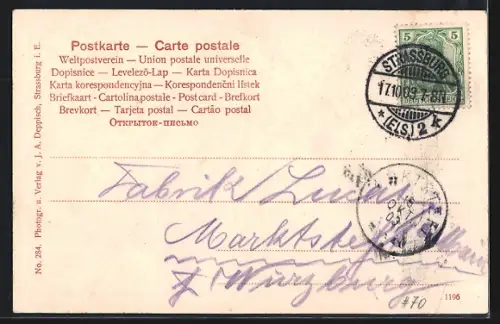 Postkarte — Carte postale
Weltpostverein — Union postale universelle
Dopisnice — Levelező-Lap — Karta Dopisnica
Karta korespondencyjna — Korespondenční lístek
Briefkaart - Cartolina postale - Postcard - Brefkort
Brevkort — Tarjeta postal — Cartão postal
Открытое-письмо
5 5
STRASSBURG
* (ELS) 2 k
Fabrik
Marktsteft Main
Würzburg
#70
1106
No. 284. Photogr. u. Verlag v. J. A. Deppisch, Strassburg i. E.